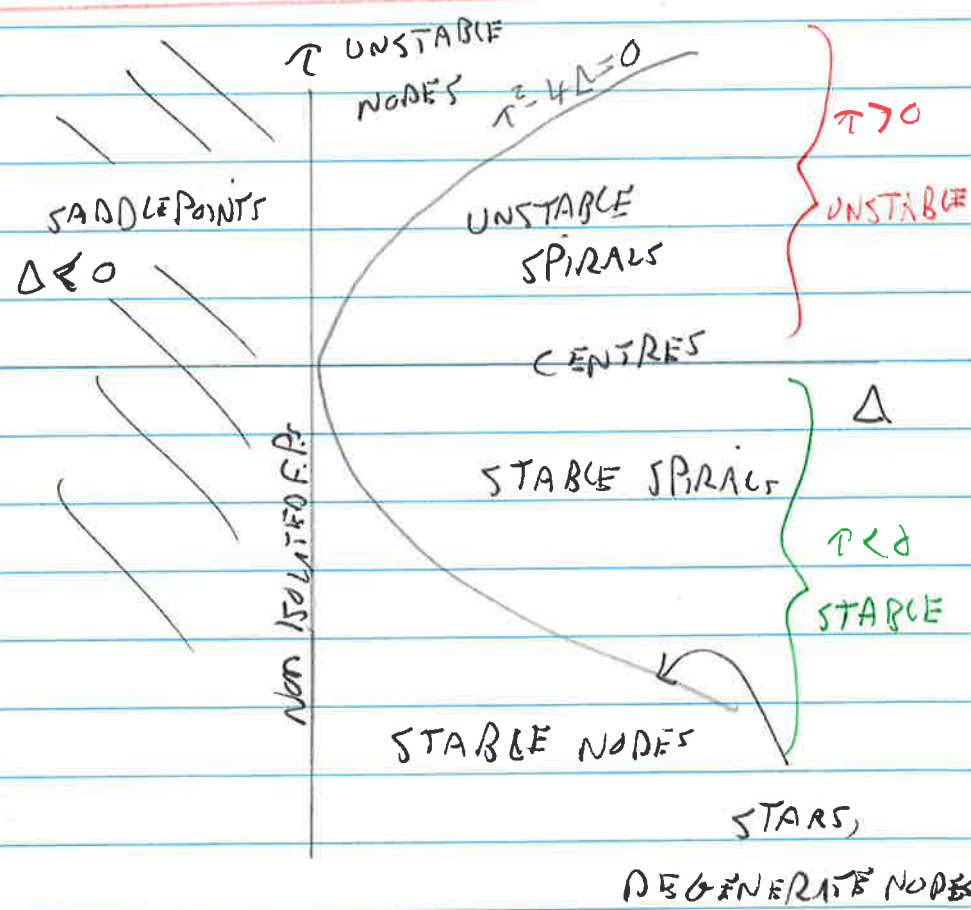 τ UNSTABLE
NODES
τ²-4Δ=0
τ>0
UNSTABLE
SADDLEPOINTS
Δ<0
UNSTABLE
SPIRALS
CENTRES
Δ
NON ISOLATED F.P.s
STABLE SPIRALS
τ<0
STABLE
STABLE NODES
STARS,
DEGENERATE NODES